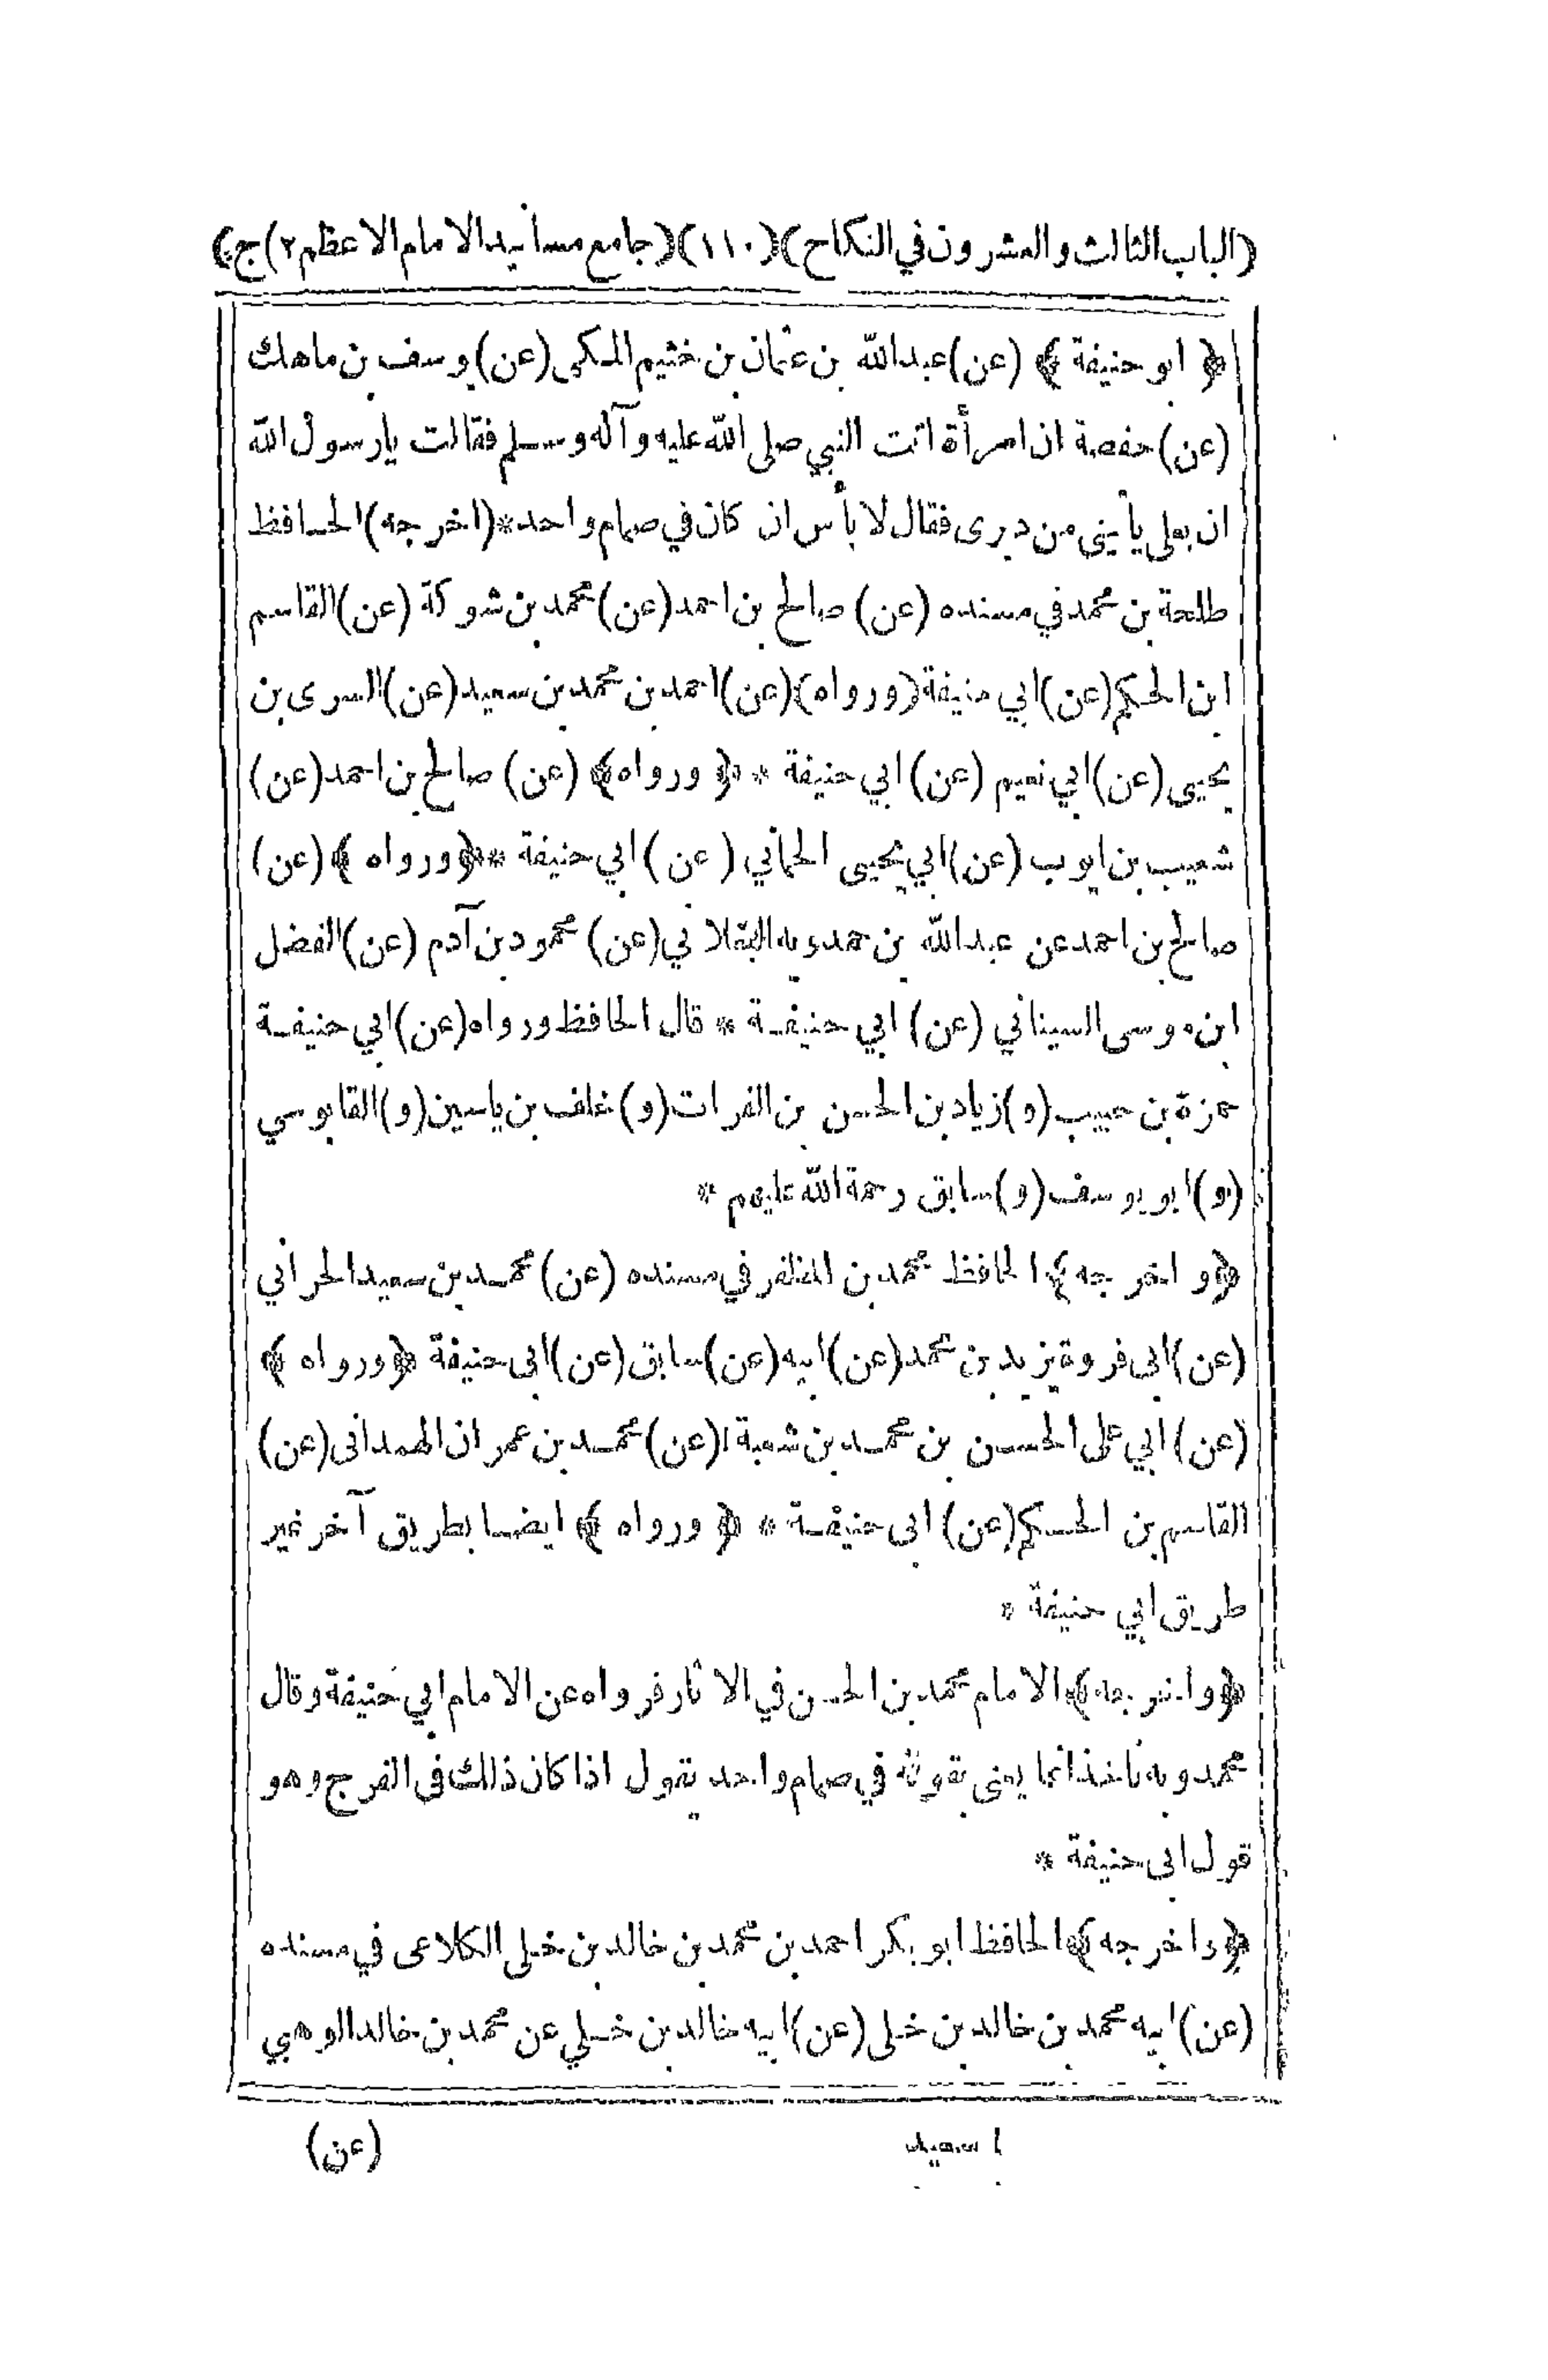 (الباب الثالث والعشرون في النكاح) (١١٠) (جامع مسانيد الامام الاعظم ٢) ج)
﴿ ابو حنيفة ﴾ (عن) عبد الله بن عثمان بن خثيم المكي (عن) يوسف بن ماهك
(عن) حفصة ان امرأة اتت النبي صلى الله عليه وآله وسلم فقالت يا رسول الله
ان بعلي يأتيني من دبرى فقال لا بأس ان كان في صمام واحد * (اخرجه) الحافظ
طلحة بن محمد في مسنده (عن) صالح بن احمد (عن) محمد بن شوكة (عن) القاسم
ابن الحكم (عن) ابي حنيفة (ورواه) (عن) احمد بن محمد بن سعيد (عن) السرى بن
يحيى (عن) ابي نعيم (عن) ابي حنيفة * ﴿ ورواه ﴾ (عن) صالح بن احمد (عن)
شعيب بن ايوب (عن) ابي يحيى الحماني (عن) ابي حنيفة * ﴿ ورواه ﴾ (عن)
صالح بن احمد عن عبد الله بن حمدويه البقلاني (عن) محمود بن آدم (عن) الفضل
ابن موسى السيناني (عن) ابي حنيفة * قال الحافظ ورواه (عن) ابي حنيفة
حمزة بن حبيب (و) زياد بن الحسن بن الفرات (و) خلف بن ياسين (و) القابوسي
(و) ابو يوسف (و) سابق رحمة الله عليهم *
﴿ واخرجه ﴾ الحافظ محمد بن المظفر في مسنده (عن) محمد بن سعيد الحراني
(عن) ابى فروة يزيد بن محمد (عن) ابيه (عن) سابق (عن) ابى حنيفة ﴿ ورواه ﴾
(عن) ابي على الحسن بن محمد بن شعبة ١ (عن) محمد بن عمران الهمدانى (عن)
القاسم بن الحكم (عن) ابى حنيفة * ﴿ ورواه ﴾ ايضا بطريق آخر غير
طريق ابي حنيفة *
﴿ واخرجه ﴾ الامام محمد بن الحسن في الآثار فرواه عن الامام ابي حنيفة وقال
محمد وبه نأخذ انما يعنى بقوله في صمام واحد يقول اذا كان ذلك فى الفرج وهو
قول ابى حنيفة *
﴿ واخرجه ﴾ الحافظ ابو بكر احمد بن محمد بن خالد بن خلى الكلاعى في مسنده
(عن) ابيه محمد بن خالد بن خلى (عن) ابيه خالد بن خلي عن محمد بن خالد الوهبي
١ سعيد
(عن)